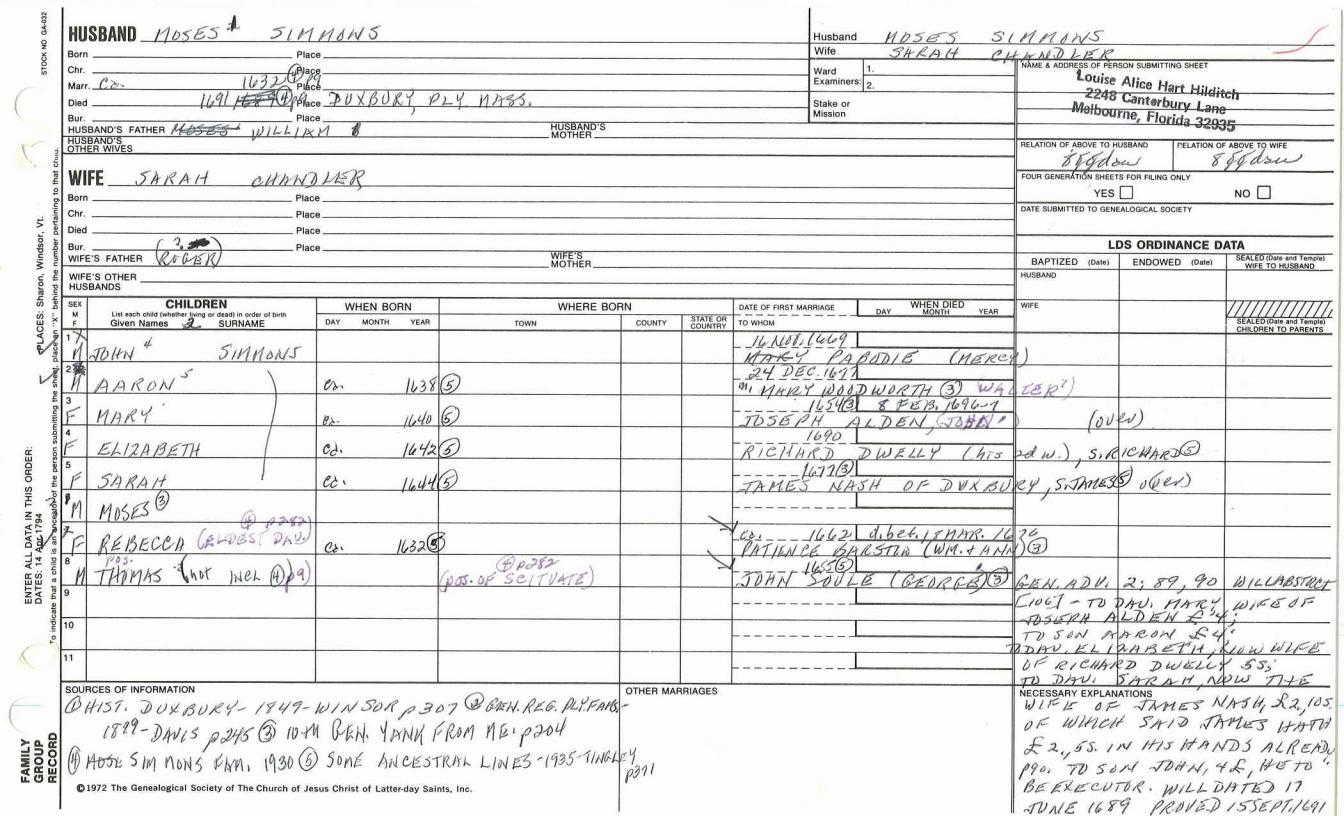 HUSBAND MOSES SIMMONS
Born Place
Chr. Place
Marr. Ca. 1632 ④ p9 Place
Died 1691 ④ p9 Place DUXBURY, PLY MASS.
Bur. Place
HUSBAND'S FATHER MOSES WILLIAM
HUSBAND'S MOTHER
HUSBAND'S OTHER WIVES
WIFE SARAH CHANDLER
Born Place
Chr. Place
Died Place
Bur. Place
WIFE'S FATHER (ROGER)
WIFE'S MOTHER
WIFE'S OTHER HUSBANDS
Husband MOSES SIMMONS
Wife SARAH CHANDLER
Ward Examiners: 1.
2.
Stake or Mission
NAME & ADDRESS OF PERSON SUBMITTING SHEET
Louise Alice Hart Hilditch
2248 Canterbury Lane
Melbourne, Florida 32935
RELATION OF ABOVE TO HUSBAND RELATION OF ABOVE TO WIFE
FOUR GENERATION SHEETS FOR FILING ONLY
YES NO
DATE SUBMITTED TO GENEALOGICAL SOCIETY
LDS ORDINANCE DATA
BAPTIZED (Date) ENDOWED (Date) SEALED (Date and Temple) WIFE TO HUSBAND
HUSBAND
WIFE
SEALED (Date and Temple) CHILDREN TO PARENTS
SEX M F
CHILDREN
List each child (whether living or dead) in order of birth
Given Names SURNAME
WHEN BORN
DAY MONTH YEAR
WHERE BORN
TOWN COUNTY STATE OR COUNTRY
DATE OF FIRST MARRIAGE
TO WHOM
WHEN DIED
DAY MONTH YEAR
1 M JOHN 4 SIMMONS 16 NOV. 1669
MARY PABODIE (MERCY)
2 M AARON 5 ca. 1638 ⑤ 24 DEC. 1677
m. MARY WOODWORTH ③ WALTER?)
3 F MARY ca. 1640 ⑤ 1654 ③ 8 FEB. 1696-7
JOSEPH ALDEN, (JOHN) (over)
4 F ELIZABETH ca. 1642 ⑤ 1690
RICHARD DWELLY (his 2d w.), S. RICHARD ⑤
5 F SARAH ca. 1644 ⑤ 1677 ③
JAMES NASH OF DUXBURY, S. JAMES ⑤ over)
M MOSES ③
7 F REBECCA (ELDEST DAU. ④ p282) ca. 1632 ⑤ ca. 1662 d. bet. 17 MAR. 1676
PATIENCE BARSTOW (WM. & ANN) ③
8 M pos. THOMAS (not incl ④ p9) ④ p282 (POS. OF SCITUATE) 1655 ⑤
JOHN SOULE (GEORGE) ③
9
10
11
GEN. ADV. 2; 89, 90 WILL ABSTRCT
[106] - TO DAU. MARY, WIFE OF
JOSEPH ALDEN £ 4;
TO SON AARON £4;
TO DAU. ELIZABETH, NOW WIFE
OF RICHARD DWELLY 5S;
TO DAU. SARAH, NOW THE
NECESSARY EXPLANATIONS
WIFE OF JAMES NASH, £2, 10S.
OF WHICH SAID JAMES HATH
£ 2., 5S. IN HIS HANDS ALREADY
p90. TO SON JOHN, 4£, HE TO
BE EXECUTOR. WILL DATED 17
JUNE 1689 PROVED 15 SEPT. 1691
SOURCES OF INFORMATION
① HIST. DUXBURY - 1849 - WINSOR p307 ② GEN. REG. PLY. FAMS. -
1899 - DAVIS p245 ③ 10-M GEN. YANK FROM ME. p204
④ MOSE SIMMONS FAM. 1930 ⑤ SOME ANCESTRAL LINES - 1935 - TINGLEY
p371
OTHER MARRIAGES
©1972 The Genealogical Society of The Church of Jesus Christ of Latter-day Saints, Inc.
STOCK NO GA-032
PLACES: Sharon, Windsor, Vt.
ENTER ALL DATA IN THIS ORDER:
DATES: 14 Apr 1794
To indicate that a child is an ancestor of the person submitting the sheet, place an "X" behind the number pertaining to that child.
FAMILY GROUP RECORD